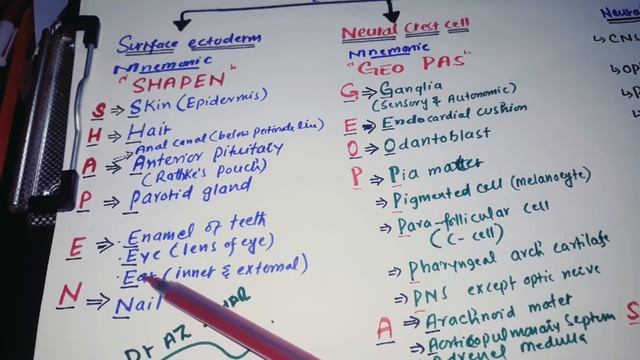 Surface ectoderm
Mnemonic
"SHAPEN"
S → Skin (Epidermis)
H → Hair
→ Anal canal (below pectinate line)
A → Anterior Pituitary
(Rathke's Pouch)
P → Parotid gland
E ⇒ · Enamel of teeth
· Eye (lens of eye)
· Ear (inner & external)
N ⇒ Nail
Dr AZ
Neural Crest cell
Mnemonic
"GEO PAS"
G ⇒ Ganglia
(Sensory & Autonomic)
E ⇒ Endocardial cushion
O ⇒ Odantoblast
P ⇒ Pia matter
⇒ Pigmented cell (melanocyte)
⇒ Para-follicular cell
(C-cell)
Pharyngeal arch cartilage
⇒ PNS except optic nerve
A ⇒ Arachnoid mater
Aorticopulmonary Septum
Adrenal medulla
S
Neural
↳ CNS